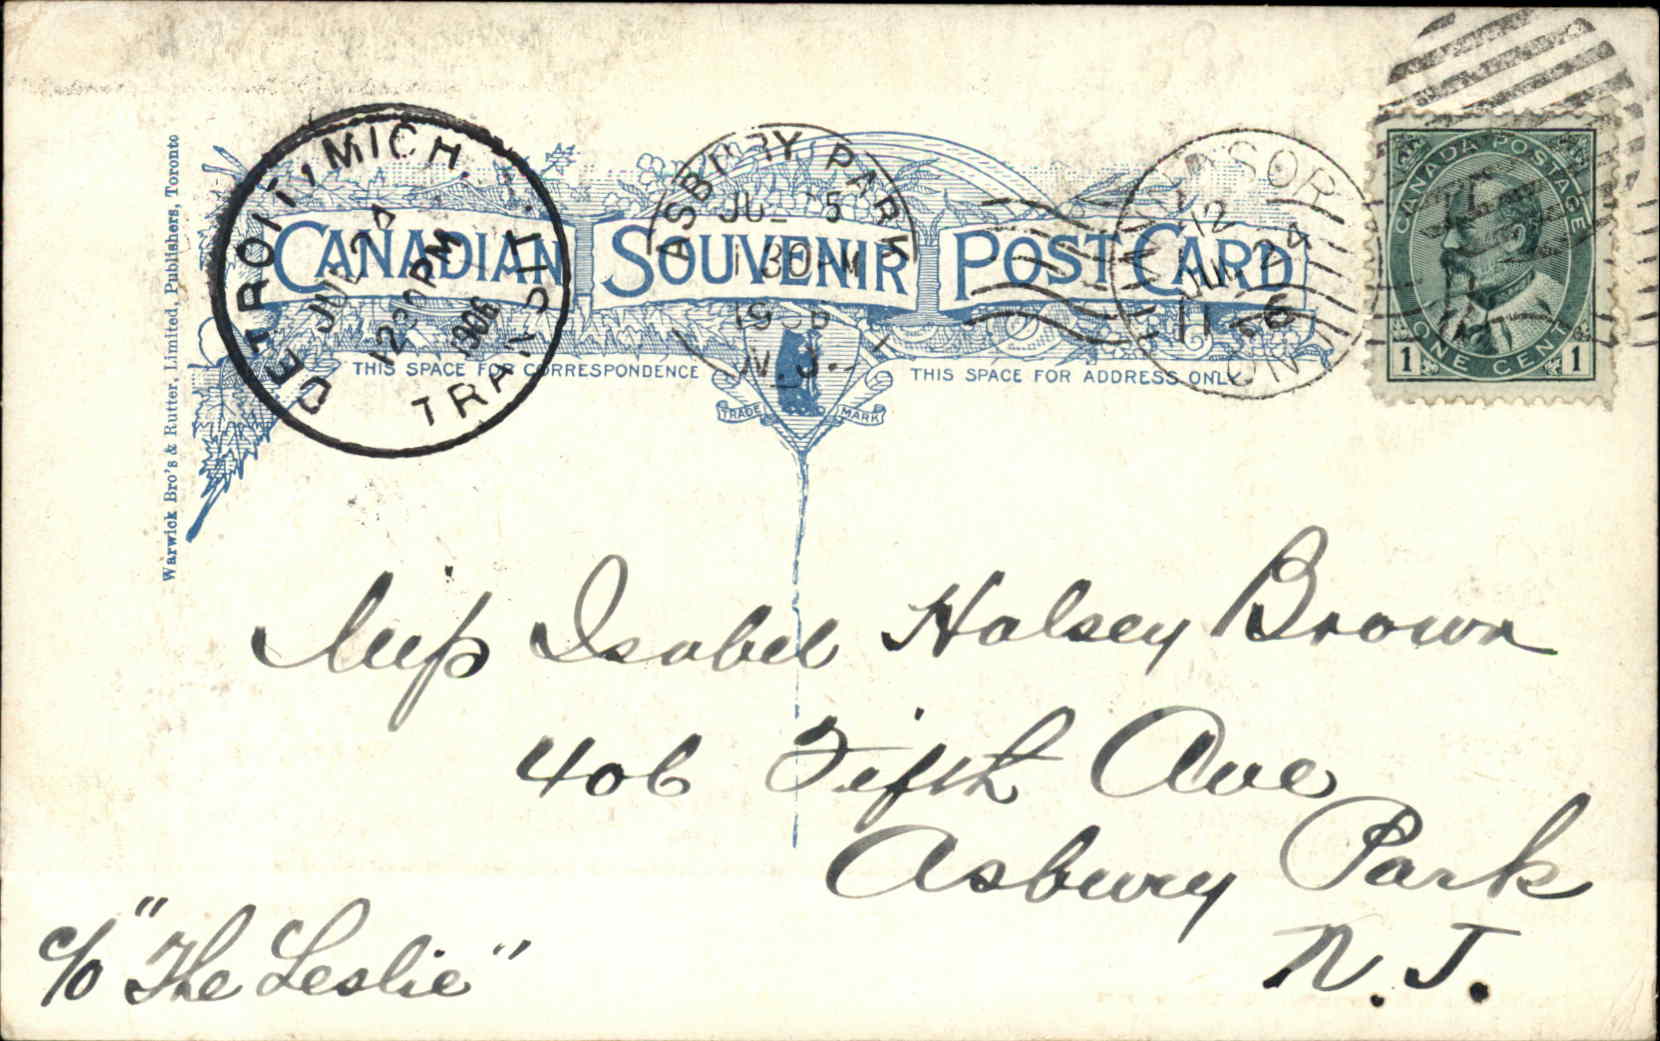 Warwick Bro's & Rutter, Limited, Publishers, Toronto
DETROIT, MICH.
1230 PM
1906
TRANSIT
ASBURY PARK
JUL 5
1 30 PM
1906
N.J.
WINDSOR
12
JUL 24
06
ONT
CANADA POSTAGE
ONE CENT
1 1
CANADIAN SOUVENIR POST CARD
THIS SPACE FOR CORRESPONDENCE
THIS SPACE FOR ADDRESS ONLY
TRADE MARK
Miss Isabel Halsey Brown
406 Fifth Ave
Asbury Park
N. J.
c/o "The Leslie"